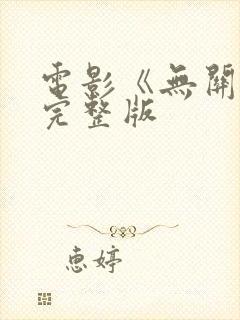 電影《無關
完整版
惠婷